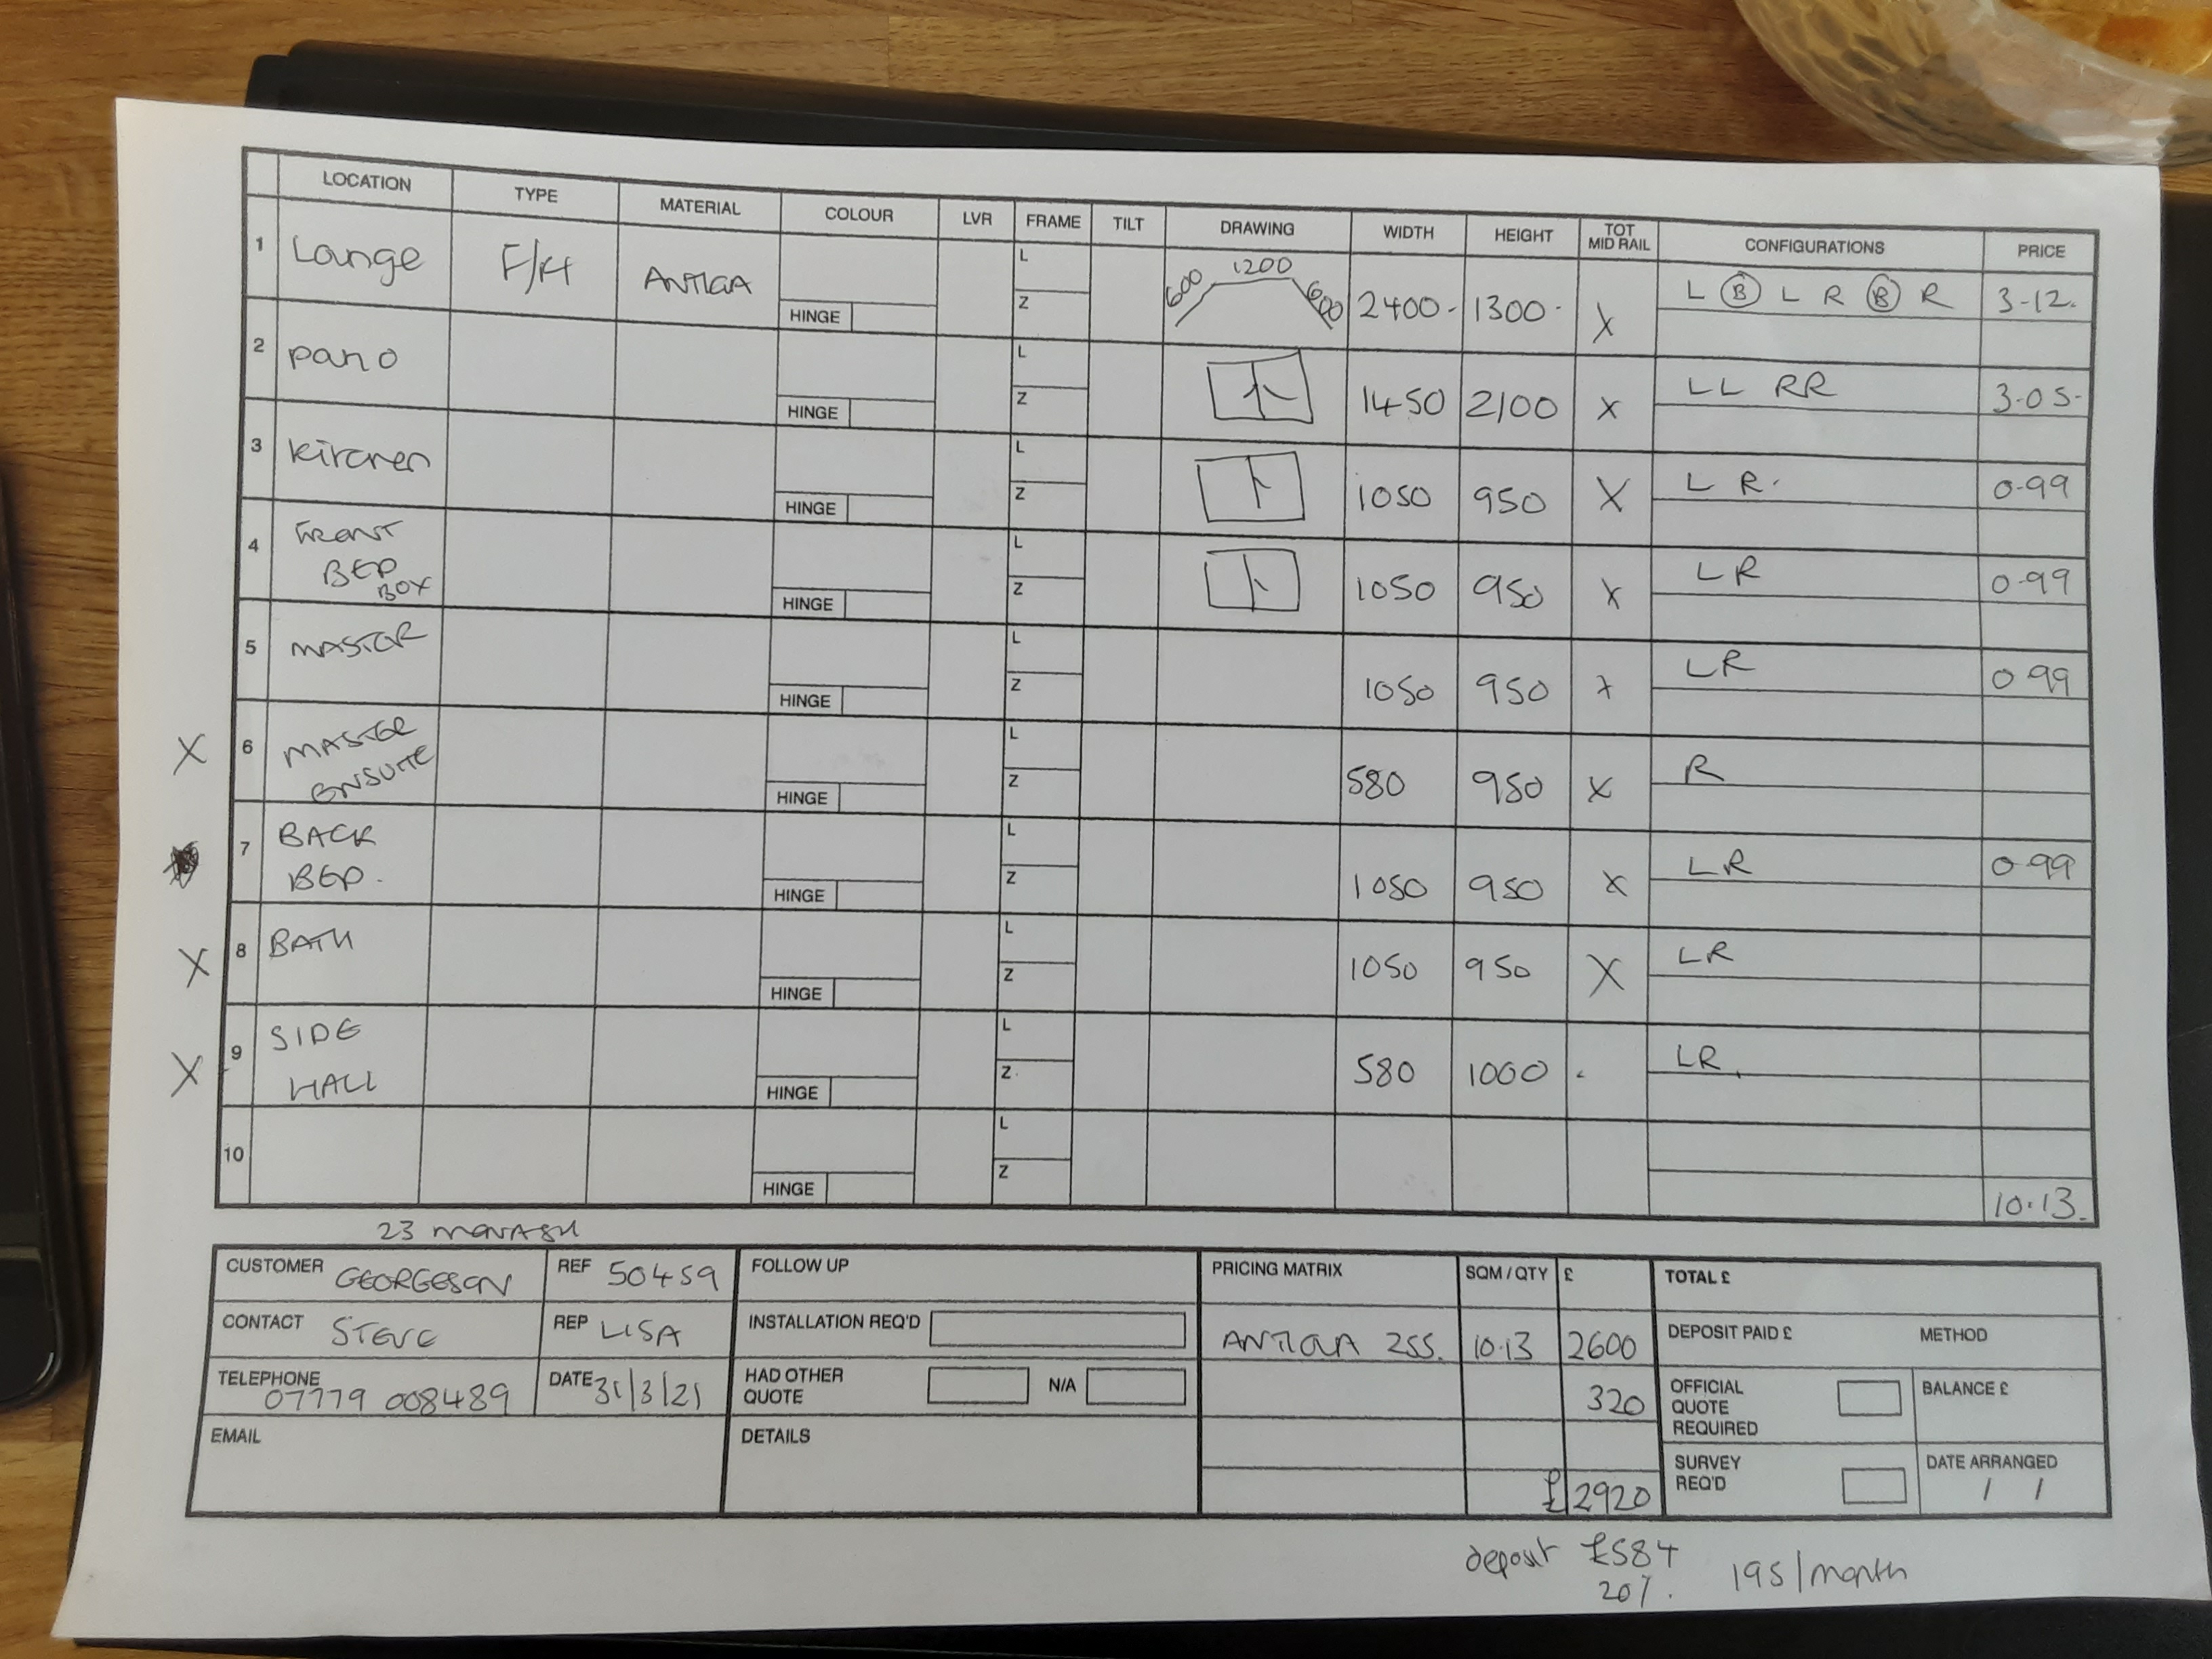 LOCATION TYPE MATERIAL COLOUR LVR FRAME TILT DRAWING WIDTH HEIGHT TOT MID RAIL CONFIGURATIONS PRICE
1 Lounge F/H ANTIGA HINGE L Z 600 1200 600 2400- 1300- X L B L R B R 3-12.
2 patio HINGE L Z 1450 2100 X LL RR 3-05-
3 Kitchen HINGE L Z 1050 950 X L R. 0-99
4 FRONT BED BOX HINGE L Z 1050 950 X LR 0-99
5 MASTER HINGE L Z 1050 950 X LR 0 99
X 6 MASTER ENSUITE HINGE L Z 580 950 X R
7 BACK BED. HINGE L Z 1050 950 X LR 0-99
X 8 BATH HINGE L Z 1050 950 X LR
X 9 SIDE HALL HINGE L Z 580 1000 LR.
10 HINGE L Z
10.13.
23
CUSTOMER GEORGESON REF 50459 FOLLOW UP PRICING MATRIX SQM / QTY £ TOTAL £
CONTACT STEVE REP LISA INSTALLATION REQ'D ANTIGUA 255. 10.13 2600 DEPOSIT PAID £ METHOD
TELEPHONE 07779 008489 DATE 31/3/21 HAD OTHER QUOTE N/A 320 OFFICIAL QUOTE REQUIRED BALANCE £
EMAIL DETAILS £ 2920 SURVEY REQ'D DATE ARRANGED / /
deposit £584 195/month
20%.